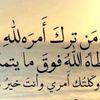 مَن تركَ أمرَهُ للهِ
طاهُ اللهُ فوقَ ما يتم
وكلتك أمري وأنت خير